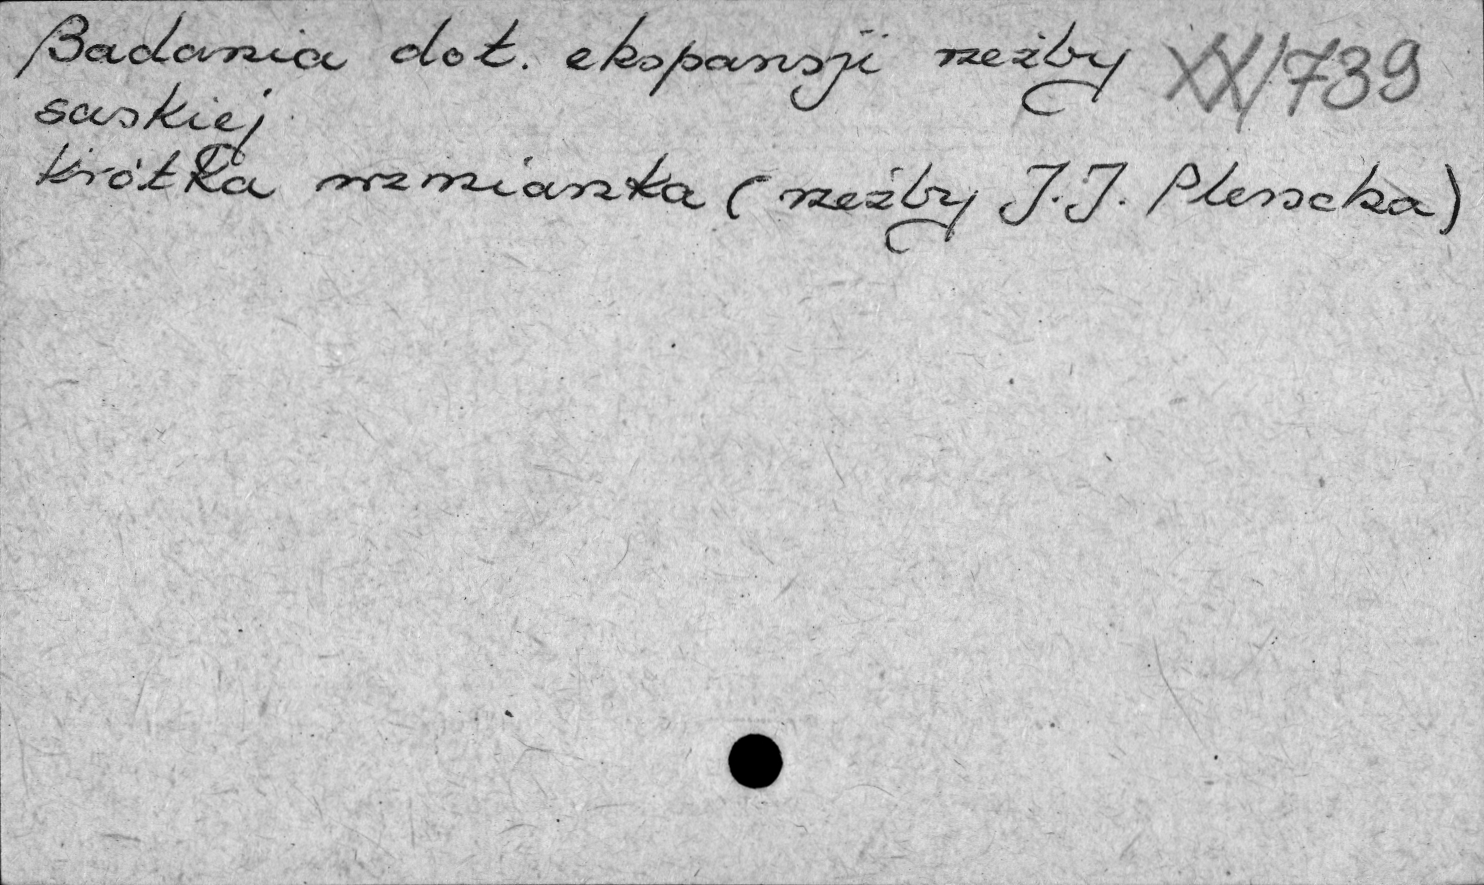 Badania dot. ekspansji rzeźby XX/739
saskiej
krótka wzmianka (rzeźby J.J. Plerscka)